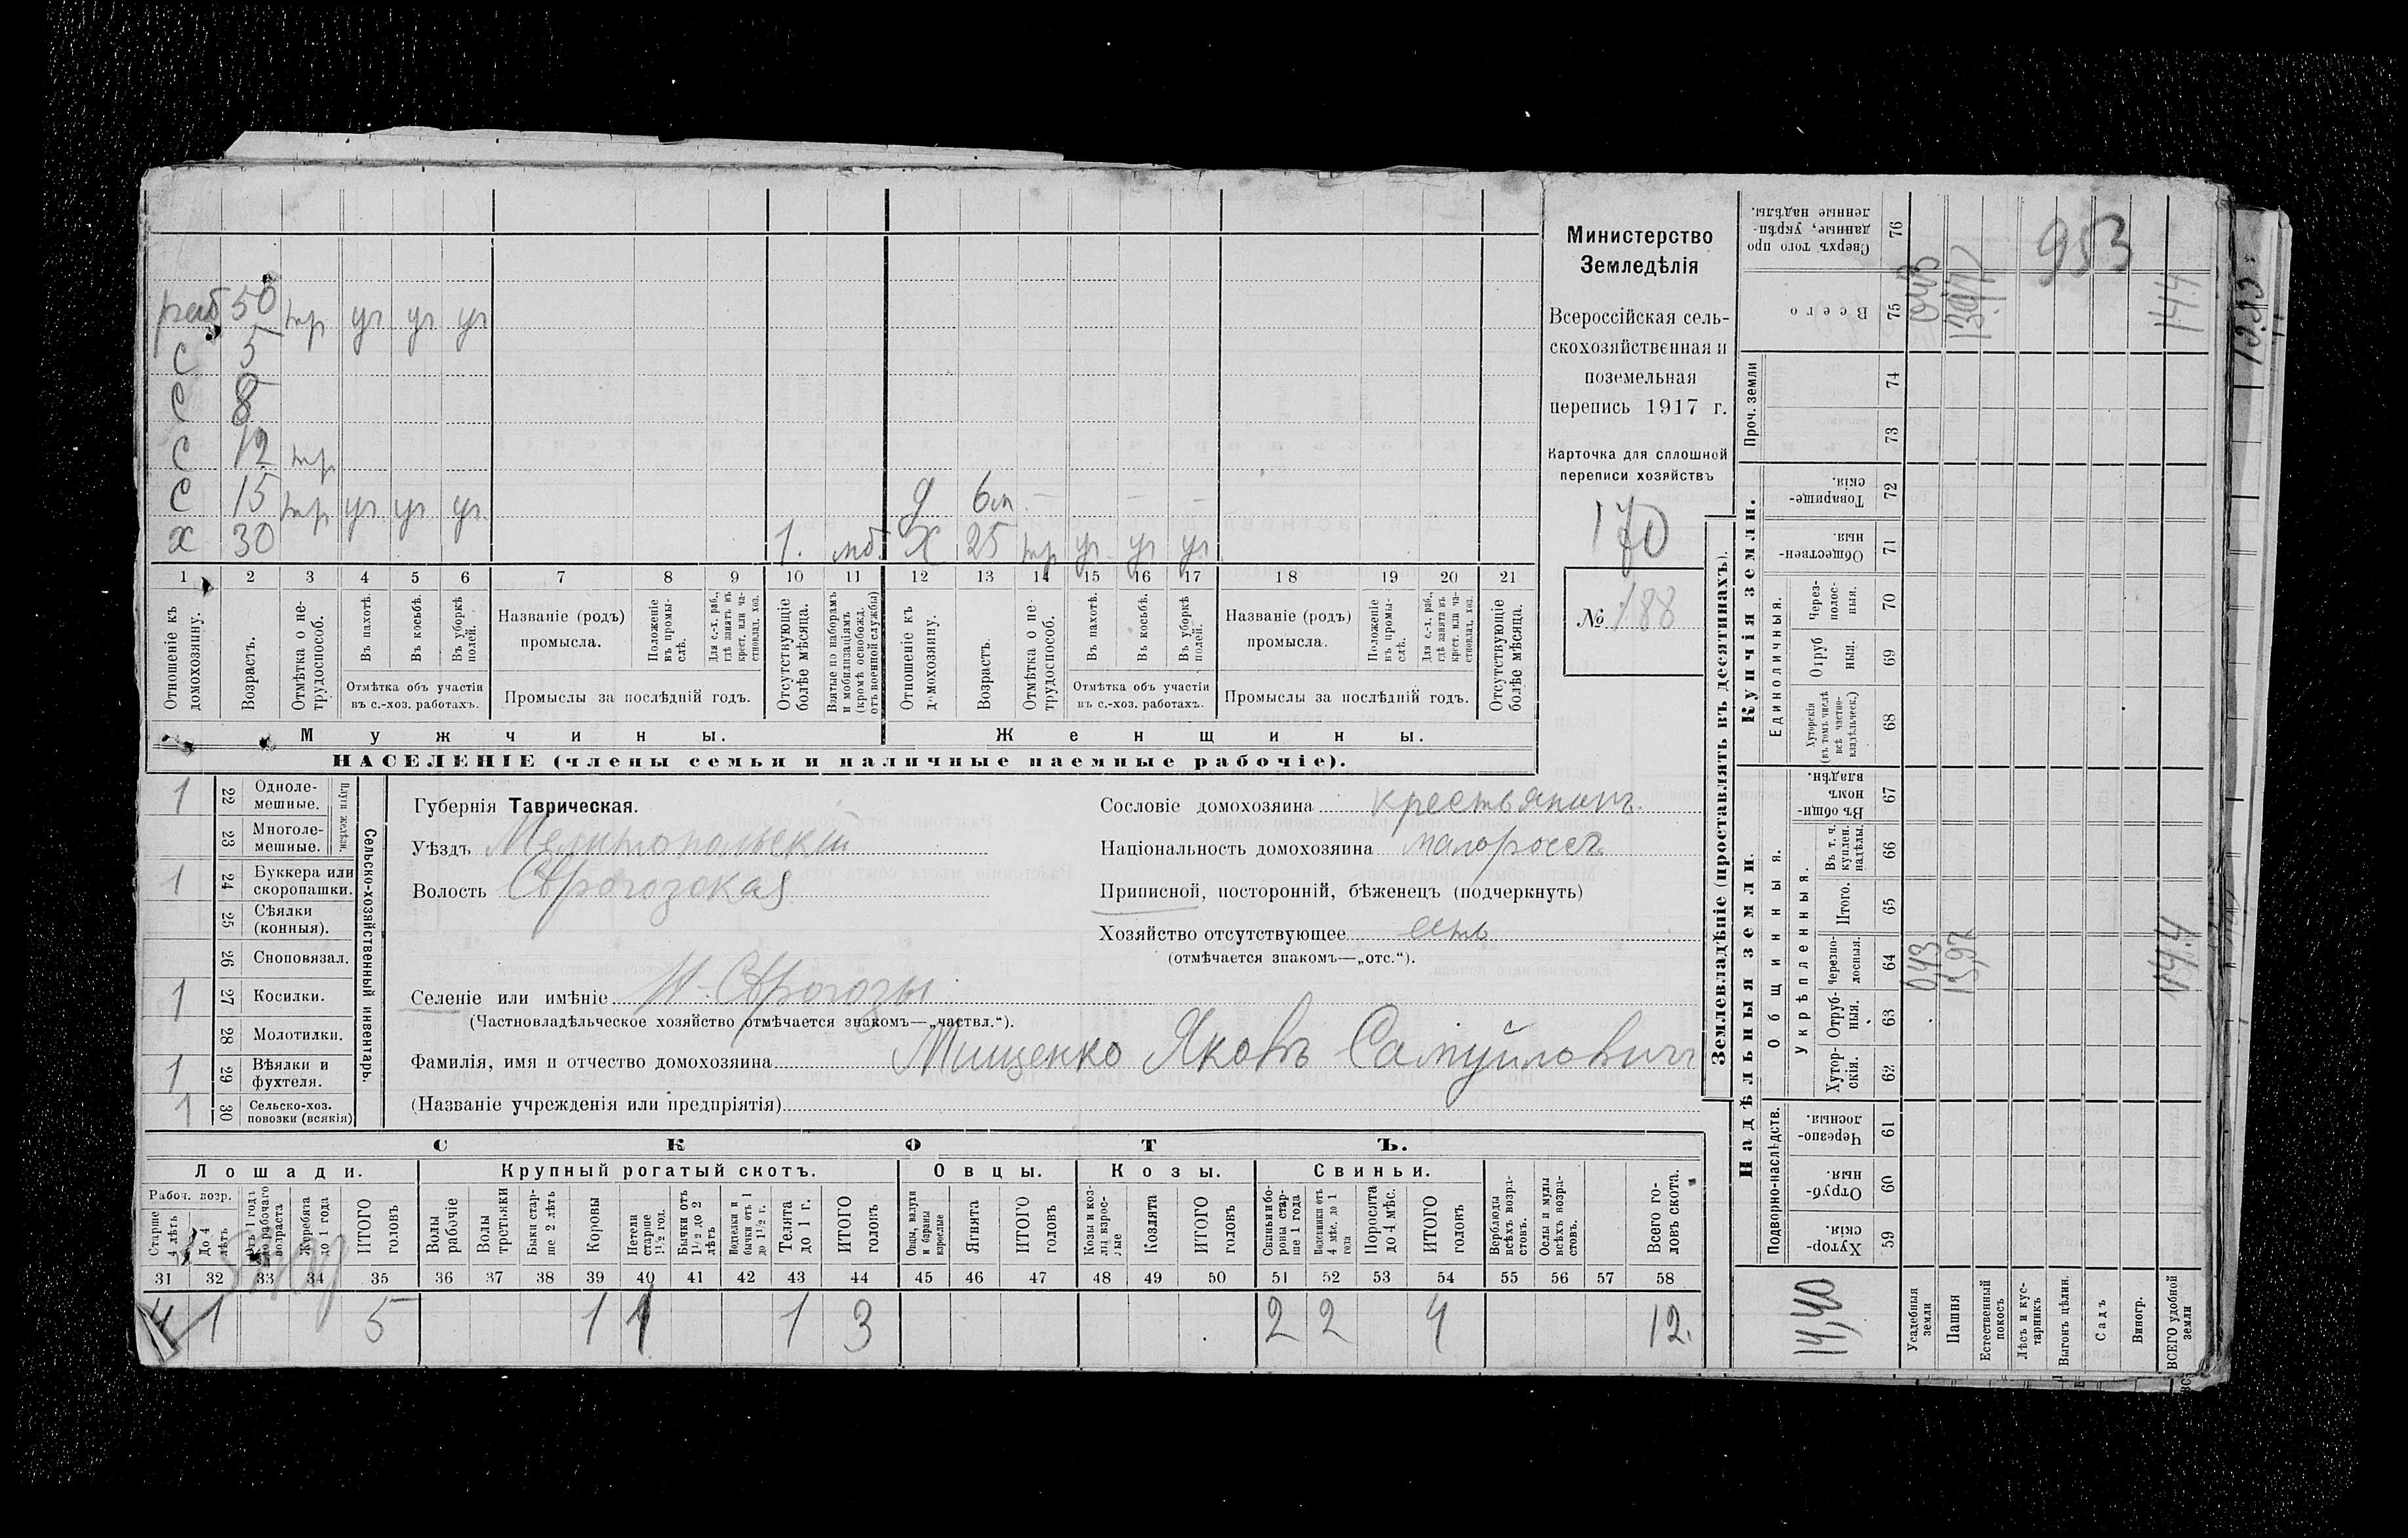 раб 50 тр уч уч уч
с 5
с 8
с 12 тр
с 15 тр уч уч уч д 6 м — — —
х 30 1. моб. х 25 тр уч уч уч
1 2 3 4 5 6 7 8 9 10 11 12 13 14 15 16 17 18 19 20 21
Отношеніе къ домохозяину.
Возрастъ.
Отмѣтка о нетрудоспособ.
Въ пахотѣ.
Въ косьбѣ.
Въ уборкѣ полей.
Отмѣтка объ участіи
въ с.-хоз. работахъ.
Названіе (родъ)
промысла.
Положеніе въ промыслѣ.
Для с.-х. раб., гдѣ занятъ въ крест. или частновлад. хоз.
Промыслы за послѣдній годъ.
Отсутствующіе болѣе мѣсяца.
Взятые по наборамъ и мобилизаціямъ (кромѣ освобожд. отъ военной службы)
Отношеніе къ домохозяину.
Возрастъ.
Отмѣтка о нетрудоспособ.
Въ пахотѣ.
Въ косьбѣ.
Въ уборкѣ полей.
Отмѣтка объ участіи
въ с.-хоз. работахъ.
Названіе (родъ)
промысла.
Положеніе въ промыслѣ.
Для с.-х. раб., гдѣ занята въ крест. или частновлад. хоз.
Промыслы за послѣдній годъ.
Отсутствующіе болѣе мѣсяца.
Мужчины. Женщины.
НАСЕЛЕНІЕ (члены семьи и наличные наемные рабочіе).
Министерство
Земледѣлія
Всероссійская сель-
скохозяйственная и
поземельная
перепись 1917 г.
Карточка для сплошной
переписи хозяйствъ
170
№ 188
Сельско-хозяйственный инвентарь.
Плуги желѣзн.
1 22 Одноле-
мешные.
23 Многоле-
мешные.
1 24 Буккера или
скоропашки.
25 Сѣялки
(конныя).
26 Сноповязал.
1 27 Косилки.
28 Молотилки.
1 29 Вѣялки и
фухтеля.
1 30 Сельско-хоз.
повозки (всякія)
Губернія Таврическая.
Уѣздъ Мелитопольскій
Волость
Сословіе домохозяина крестьянинъ.
Національность домохозяина малороссъ
Приписной, посторонній, бѣженецъ (подчеркнуть)
Хозяйство отсутствующее есть
(отмѣчается знакомъ—„отс.“).
Селеніе или имѣніе
(Частновладѣльческое хозяйство отмѣчается знакомъ—„частвл.“).
Фамилія, имя и отчество домохозяина Мищенко Яковъ Самуйловичъ
(Названіе учрежденія или предпріятія)
СКОТЪ.
Лошади. Крупный рогатый скотъ. Овцы. Козы. Свиньи.
Рабоч. возр.
Старше 4 лѣтъ
До 4 лѣтъ
Отъ 1 года до рабочаго возраста
Жеребята до 1 года
ИТОГО головъ
Волы рабочіе
Волы третьяки
Быки старше 2 лѣтъ
Коровы
Нетели старше 1½ год.
Бычки отъ 1½ до 2 лѣтъ
Подтелки и бычки отъ 1 до 1½ г.
Телята до 1 г.
ИТОГО головъ
Овцы, валухи и бараны взрослые
Ягнята
ИТОГО головъ
Козы и козлы взрослые
Козлята
ИТОГО головъ
Свиньи боровы старше 1 года
Подсвинки отъ 4 мѣс. до 1 года
Поросята до 4 мѣс.
ИТОГО головъ
Верблюды всѣхъ возрастовъ.
Ослы и мулы всѣхъ возрастовъ.
Всего головъ скота.
31 32 33 34 35 36 37 38 39 40 41 42 43 44 45 46 47 48 49 50 51 52 53 54 55 56 57 58
4 1 5 1 1 1 3 2 2 4 12.
Землевладѣніе (проставлять въ десятинахъ).
Сверхъ того проданные, укрѣпленные надѣлы. 76
953
Всего 75
0,43 13,97 14.4
Проч. земли
74
73
Купчія земли.
Товарищескія. 72
Общественныя. 71
Единоличныя.
Черезполосныя. 70
Отрубныя. 69
Хуторскія (въ томъ числѣ всѣ частновладѣльческ.) 68
Надѣльныя земли.
Общинныя.
Въ общинномъ владѣн. 67
Укрѣпленныя.
Въ т. ч. куплен. надѣлы. 66
Итого. 65
Черезполосныя. 64
0,43 13,97 14.4
Отрубныя. 63
Хуторскія. 62
Подворно-наслѣдств.
Черезполосныя. 61
Отрубныя. 60
Хуторскія. 59
14,40
Усадебныя земли
Пашня
Естественный покосъ
Лѣсъ и кустарникъ
Выгонъ цѣлин.
Садъ
Виногр.
ВСЕГО удобной земли